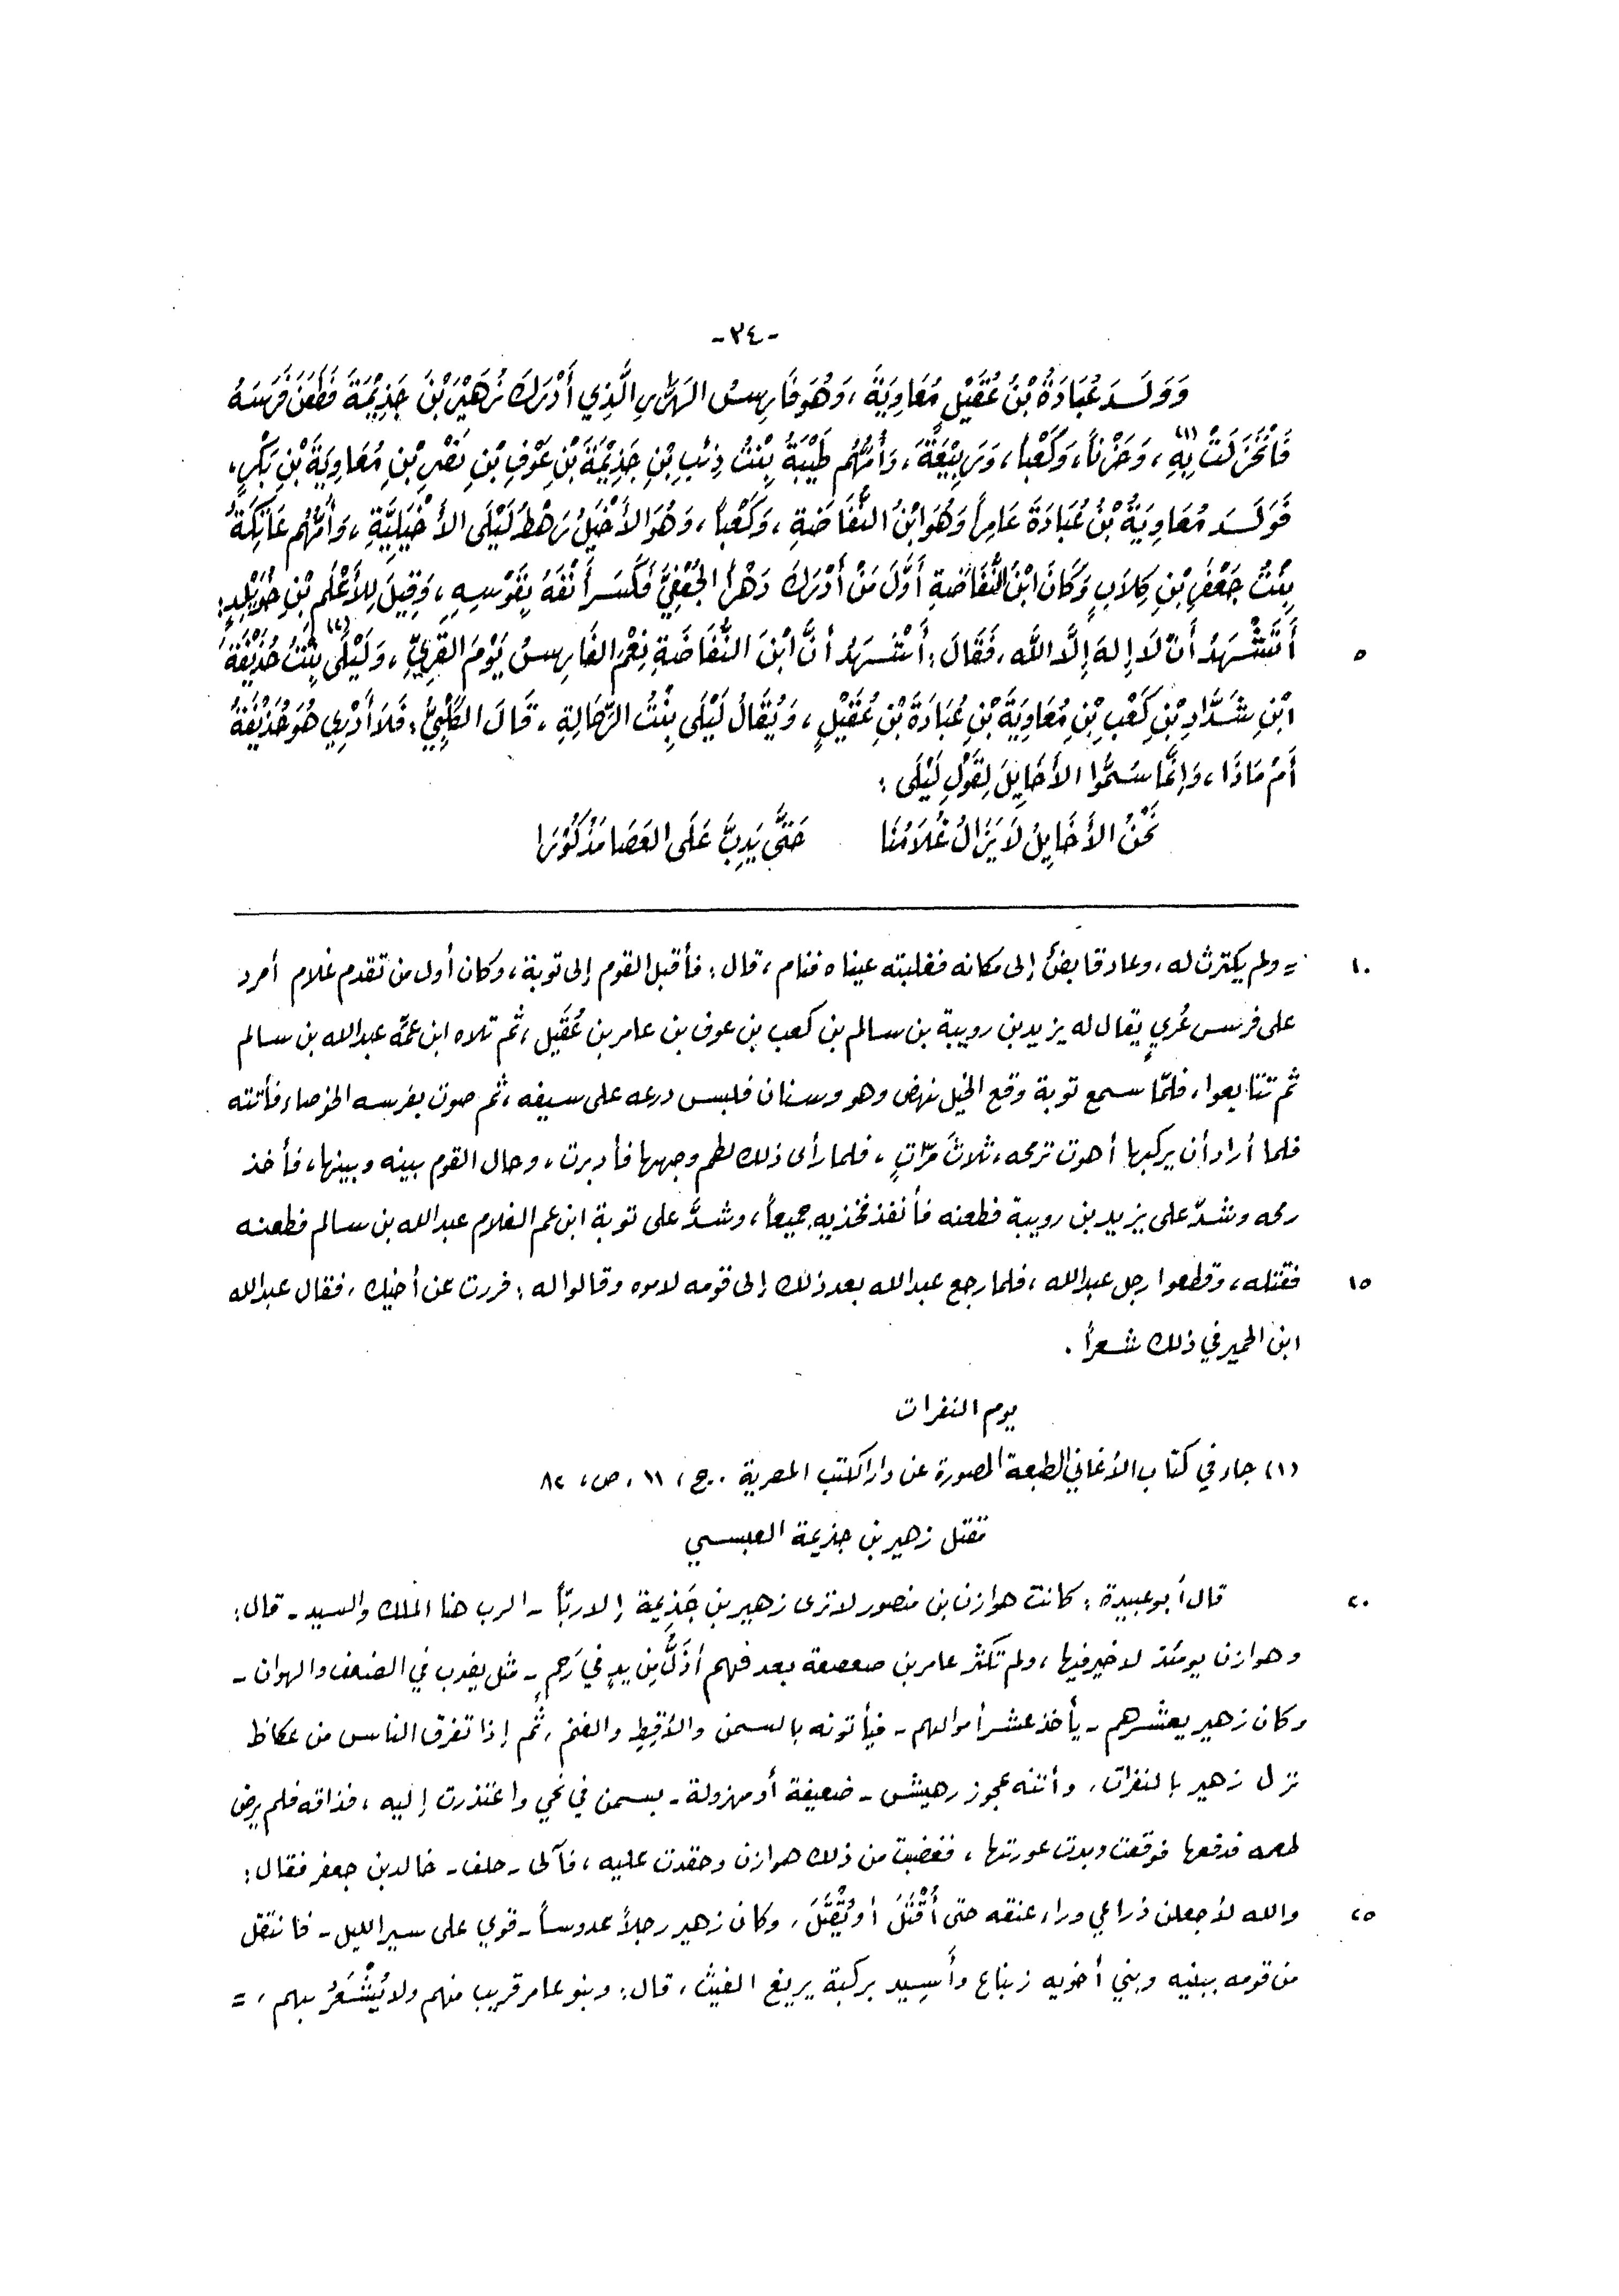 -٣٤-
وَوَلَدَ عُبَادَةُ بْنُ عُقَيْلٍ مُعَاوِيَةَ، وَهُوَ فَارِسُ الهَرَّارِ الَّذِي أَدْرَكَ زُهَيْرَ بْنَ جَذِيْمَةَ فَطَعَنَ فَرَسَهُ
فَانْخَزَلَتْ بِهِ(١)، وَحَزْناً، وَكَعْباً، وَرَبِيْعَةَ، وَأُمُّهُم طَيْبَةُ بِنْتُ ذِئْبِ بْنِ جَذِيْمَةَ بْنِ عَوْفِ بْنِ نَصْرِ بْنِ مُعَاوِيَةَ بْنِ بَكْرٍ،
فَوَلَدَ مُعَاوِيَةُ بْنُ عُبَادَةَ عَامِراً وَهُوَ ابْنُ النُّفَاضَةِ، وَكَعْباً، وَهُوَ الأَخْيَلُ رَهْطُ لَيْلَى الأَخْيَلِيَّةِ، وَأُمُّهُم عَاتِكَةُ
بِنْتُ جَعْفَرِ بْنِ كِلَابٍ وَكَانَ ابْنُ النُّفَاضَةِ أَوَّلَ مَنْ أَدْرَكَ دَهْراً الجُعْفِيَّ فَكَسَرَ أَنْفَهُ بِقَوْسِهِ، وَقِيلَ لِلأَعْلَمِ بْنِ خُوَيْلِدٍ:
٥ أَتَشْهَدُ أَنْ لَا إِلهَ إِلَّا اللَّه، فَقَالَ: أَشْهَدُ أنَّ ابْنَ النُّفَاضَةِ نِعْمَ الفَارِسُ يَوْمَ القَرِيِّ، وَلَيْلَى(٢) بِنْتُ حُذَيْفَةَ
ابْنِ شَدَّادِ بْنِ كَعْبِ بْنِ مُعَاوِيَةَ بْنِ عُبَادَةَ بْنِ عُقَيْلٍ، وَيُقَالُ لَيْلَى بِنْتُ الرَّحَالِةِ، قَالَ الكَلْبِيُّ: فَلَا أَدْرِي هُوَ حُذَيْفَةُ
أَمْ مَاذَا، وَإِنَّمَا سُمُّوا الأَخَايِلَ لِقَوْلِ لَيْلَى:
نَحْنُ الأَخَايِلُ لَا يَزَالُ غُلَامُنَا حَتَّى يَدِبَّ عَلَى العَصَا مَذْكُوْرَا
١٠ = ولم يكترث له، وعاد قابض إلى مكانه فغلبته عيناه فنام، قال: فأقبل القوم إلى توبة، وكان أول من تقدم غلام أمرد
على فرس عُريٍ يقال له يزيد بن رويبة بن سالم بن كعب بن عوف بن عامر بن عُقَيل، ثم تلاه ابن عمّه عبدالله بن سالم
ثم تتابعوا، فلمّا سمع توبة وقع الخيل نهض وهو وسنان فلبس درعه على سيفه، ثم صوت بفرسه الخوصاء فأتته
فلما أراد أن يركبها أهوت ترمحه، ثلاثَ مرّاتٍ، فلما رأى ذلك لطم وجهها فأدبرت، وحال القوم بينه وبينها، فأخذ
رمحه وشدّ على يزيد بن رويبة فطعنه فأنفذ فخذيه جميعاً، وشدَّ على توبة ابن عم الغلام عبدالله بن سالم فطعنه
١٥ فقتله، وقطعوا رجل عبدالله، فلما رجع عبدالله بعد ذلك إلى قومه لاموه وقالوا له: فررت عن أخيك، فقال عبدالله
ابن الحمير في ذلك شعراً.
يوم النفرات
(١) جاء في كتاب الأغاني الطبعة المصورة عن دار الكتب المصرية. ج، ١١، ص، ٨٢
مقتل زهير بن جذيمة العبسي
٢٠ قال أبو عبيدة: كانت هوازن بن منصور لا ترى زهير بن جَذِيمة إلا ربّاً - الرب هنا الملك والسيد - قال:
وهوازن يومئذ لا خير فيها، ولم تكثر عامر بن صعصعة بعد فهم أذَلُّ مِن يدٍ في رَحِمٍ - مثل يضرب في الضعف والهوان -
وكان زهير يعشرهم - يأخذ عشر أموالهم - فيأتونه بالسمن والأَقِطِ والغنم، ثم إذا تفرق الناس من عكاظ
نزل زهير بالنفرات، وأتته عجوز رهيش - ضعيفة أو مهزولة - بسمن في نحي واعتذرت إليه، فذاقه فلم يرض
طعمه فدفعها فوقعت وبدت عورتها، فغضبت من ذلك هوازن وحقدت عليه، فآلى - حلف - خالد بن جعفر فقال:
٢٥ والله لأجعلن ذراعي وراء عنقه حتى أُقْتَلَ أو يُقْتَلَ، وكان زهير رجلاً عدوساً - قوي على سير الليل - فانتقل
من قومه ببنيه وبني أخويه زنباع وأَسِيد بركبة يريغ الغيث، قال: وبنو عامر قريب منهم ولا يُشْعَرُ بهم، =